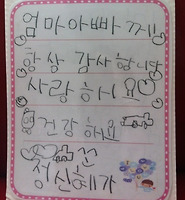 엄마아빠께
항상 감사 합니다
사랑 하세요
건강 해요
정신혜가